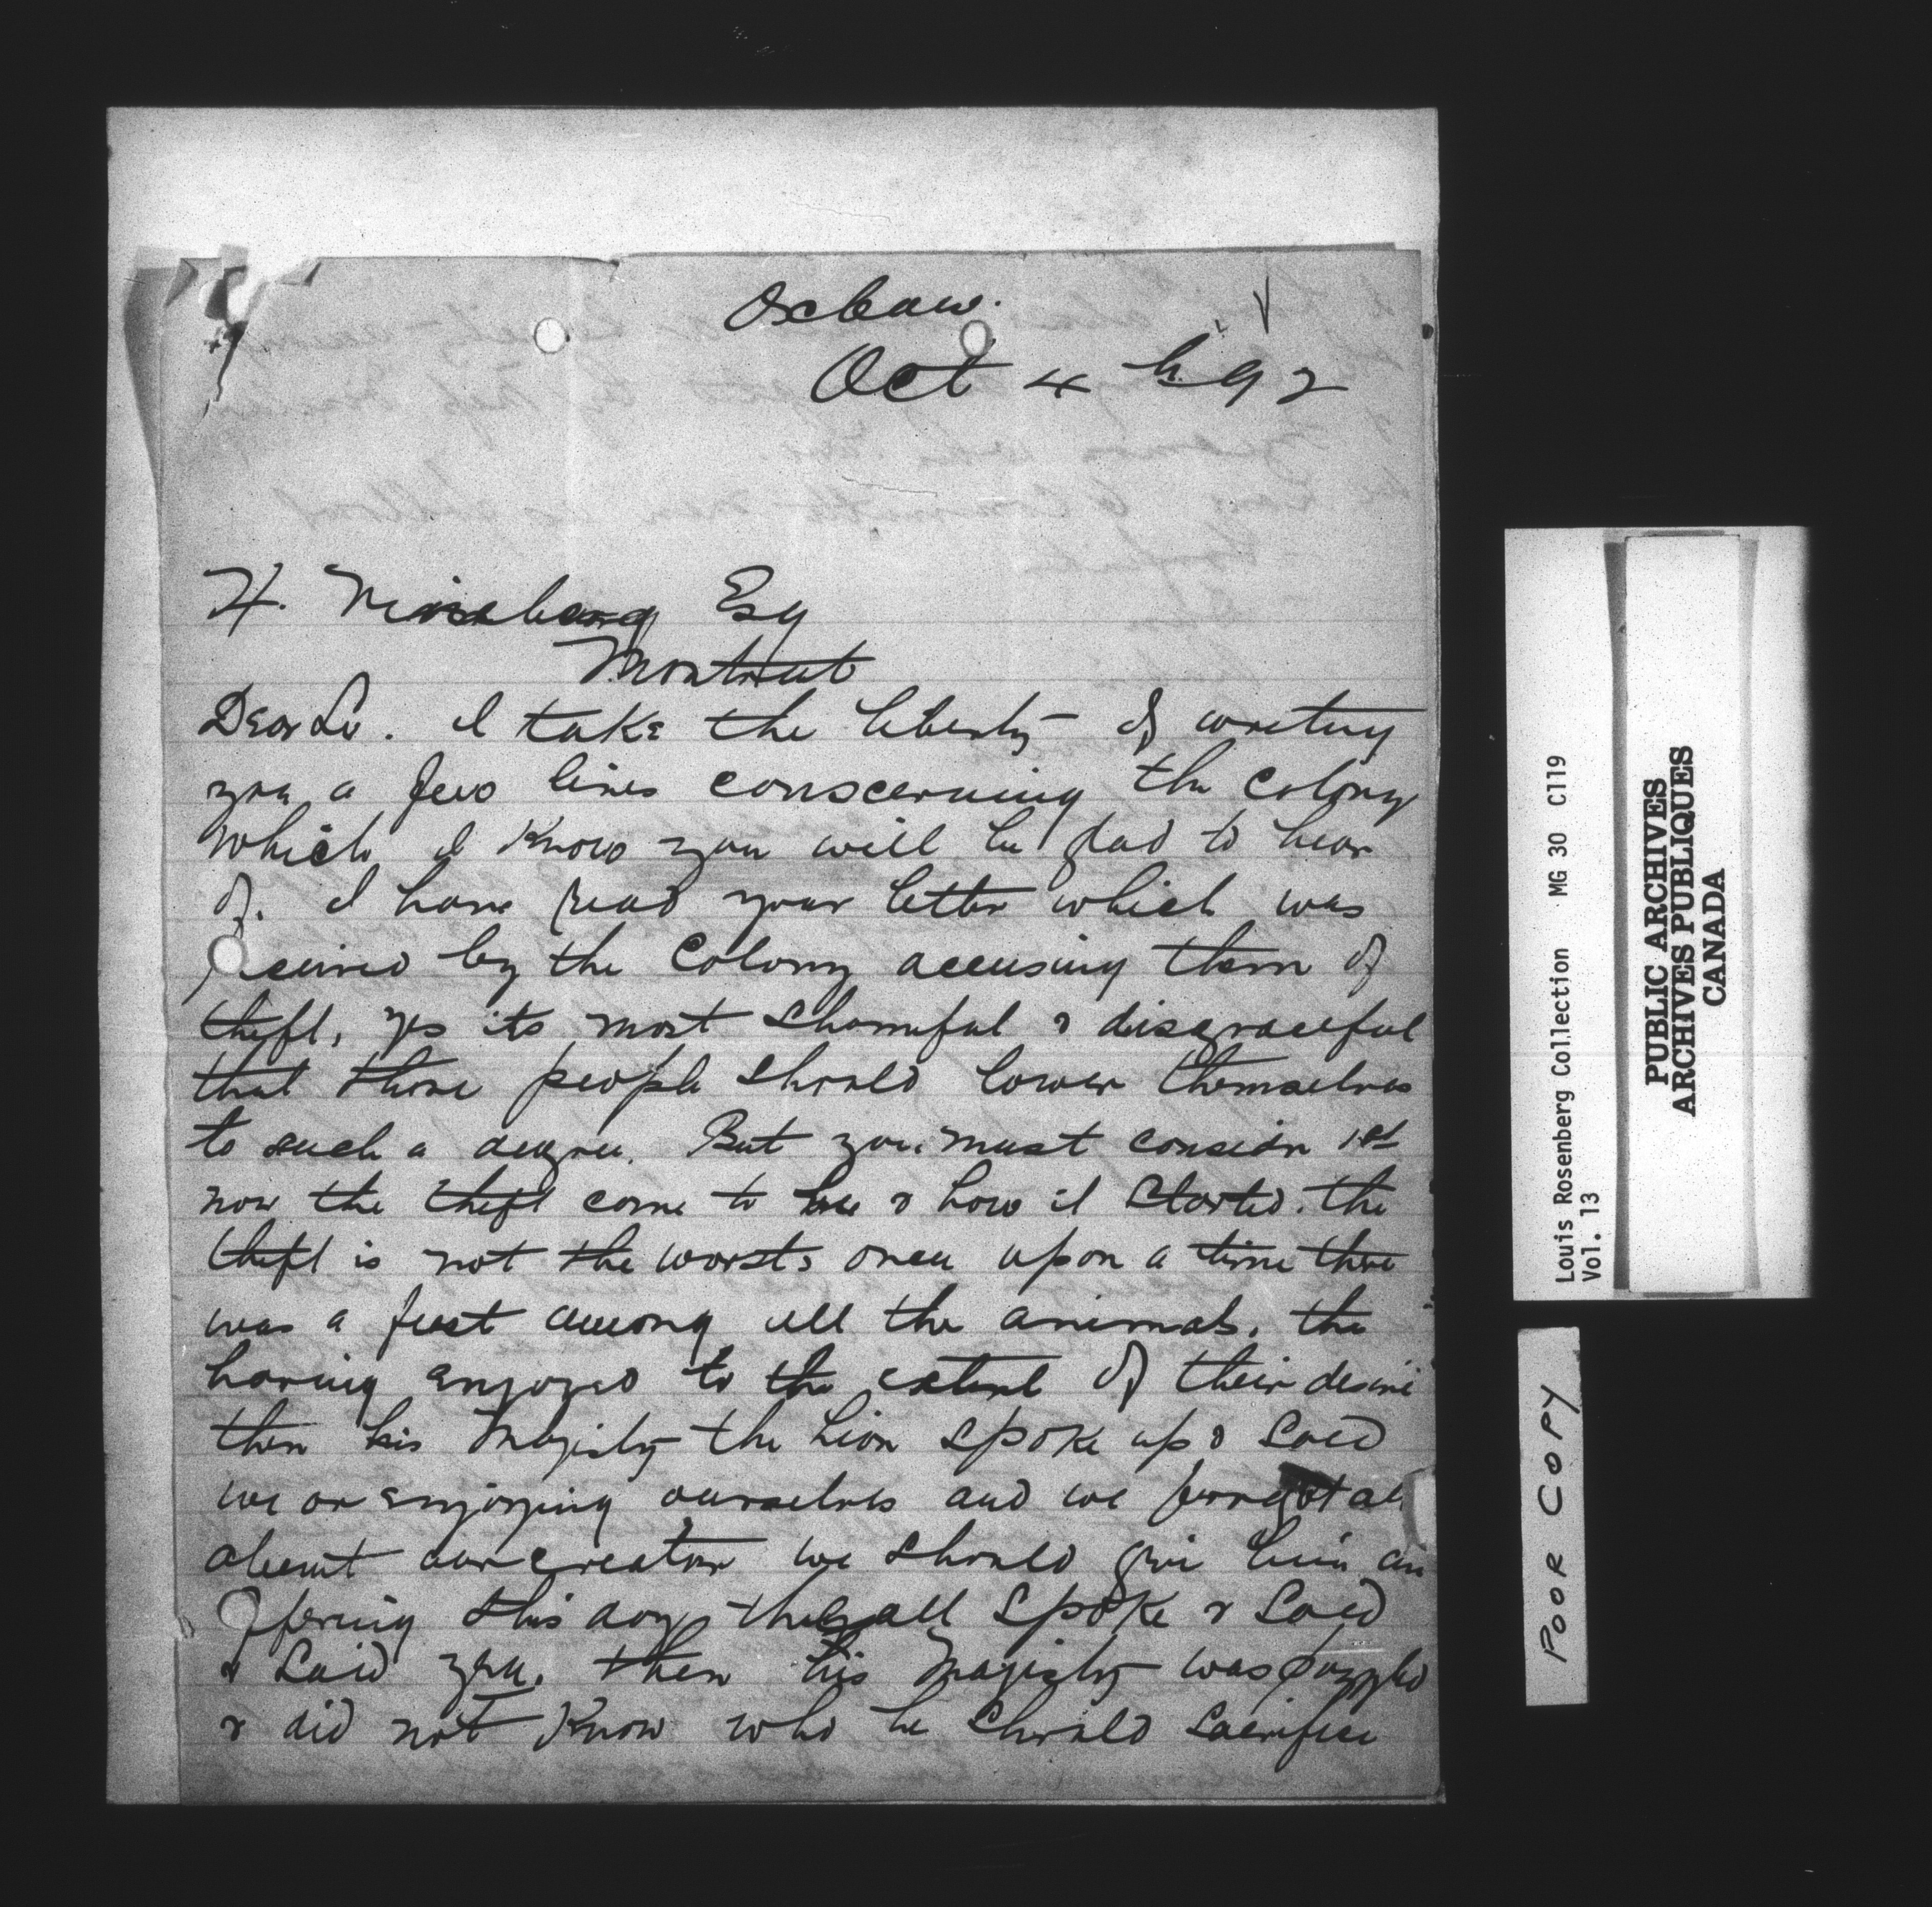 Oxbow.
Oct 4 th 92
H. Esq
Montreal
Dear Sir. I take the liberty of writing
you a few lines conscerning the Colony
which I know you will be glad to hear
of. I have read your letter which was
recived by the Colony accusing them of
theft, yes its most shameful & disgraceful
that those people should lower themselves
to such a degree. But you must consider 1st
now the theft come to be & how it started. the
theft is not the worst, once upon a time there
was a feast among all the animals, the
having enjoyed to the extent of their desire
then his Majesty the Lion spoke up & said
we are enjoying ourselves and we forgot all
about our creator we should give him an
offering this day they all spoke & said
& said yea. then his Majesty was puzzled
& did not Know who he should sacrifice
Louis Rosenberg Collection MG 30 C119
Vol. 13
PUBLIC ARCHIVES
ARCHIVES PUBLIQUES
CANADA
POOR COPY